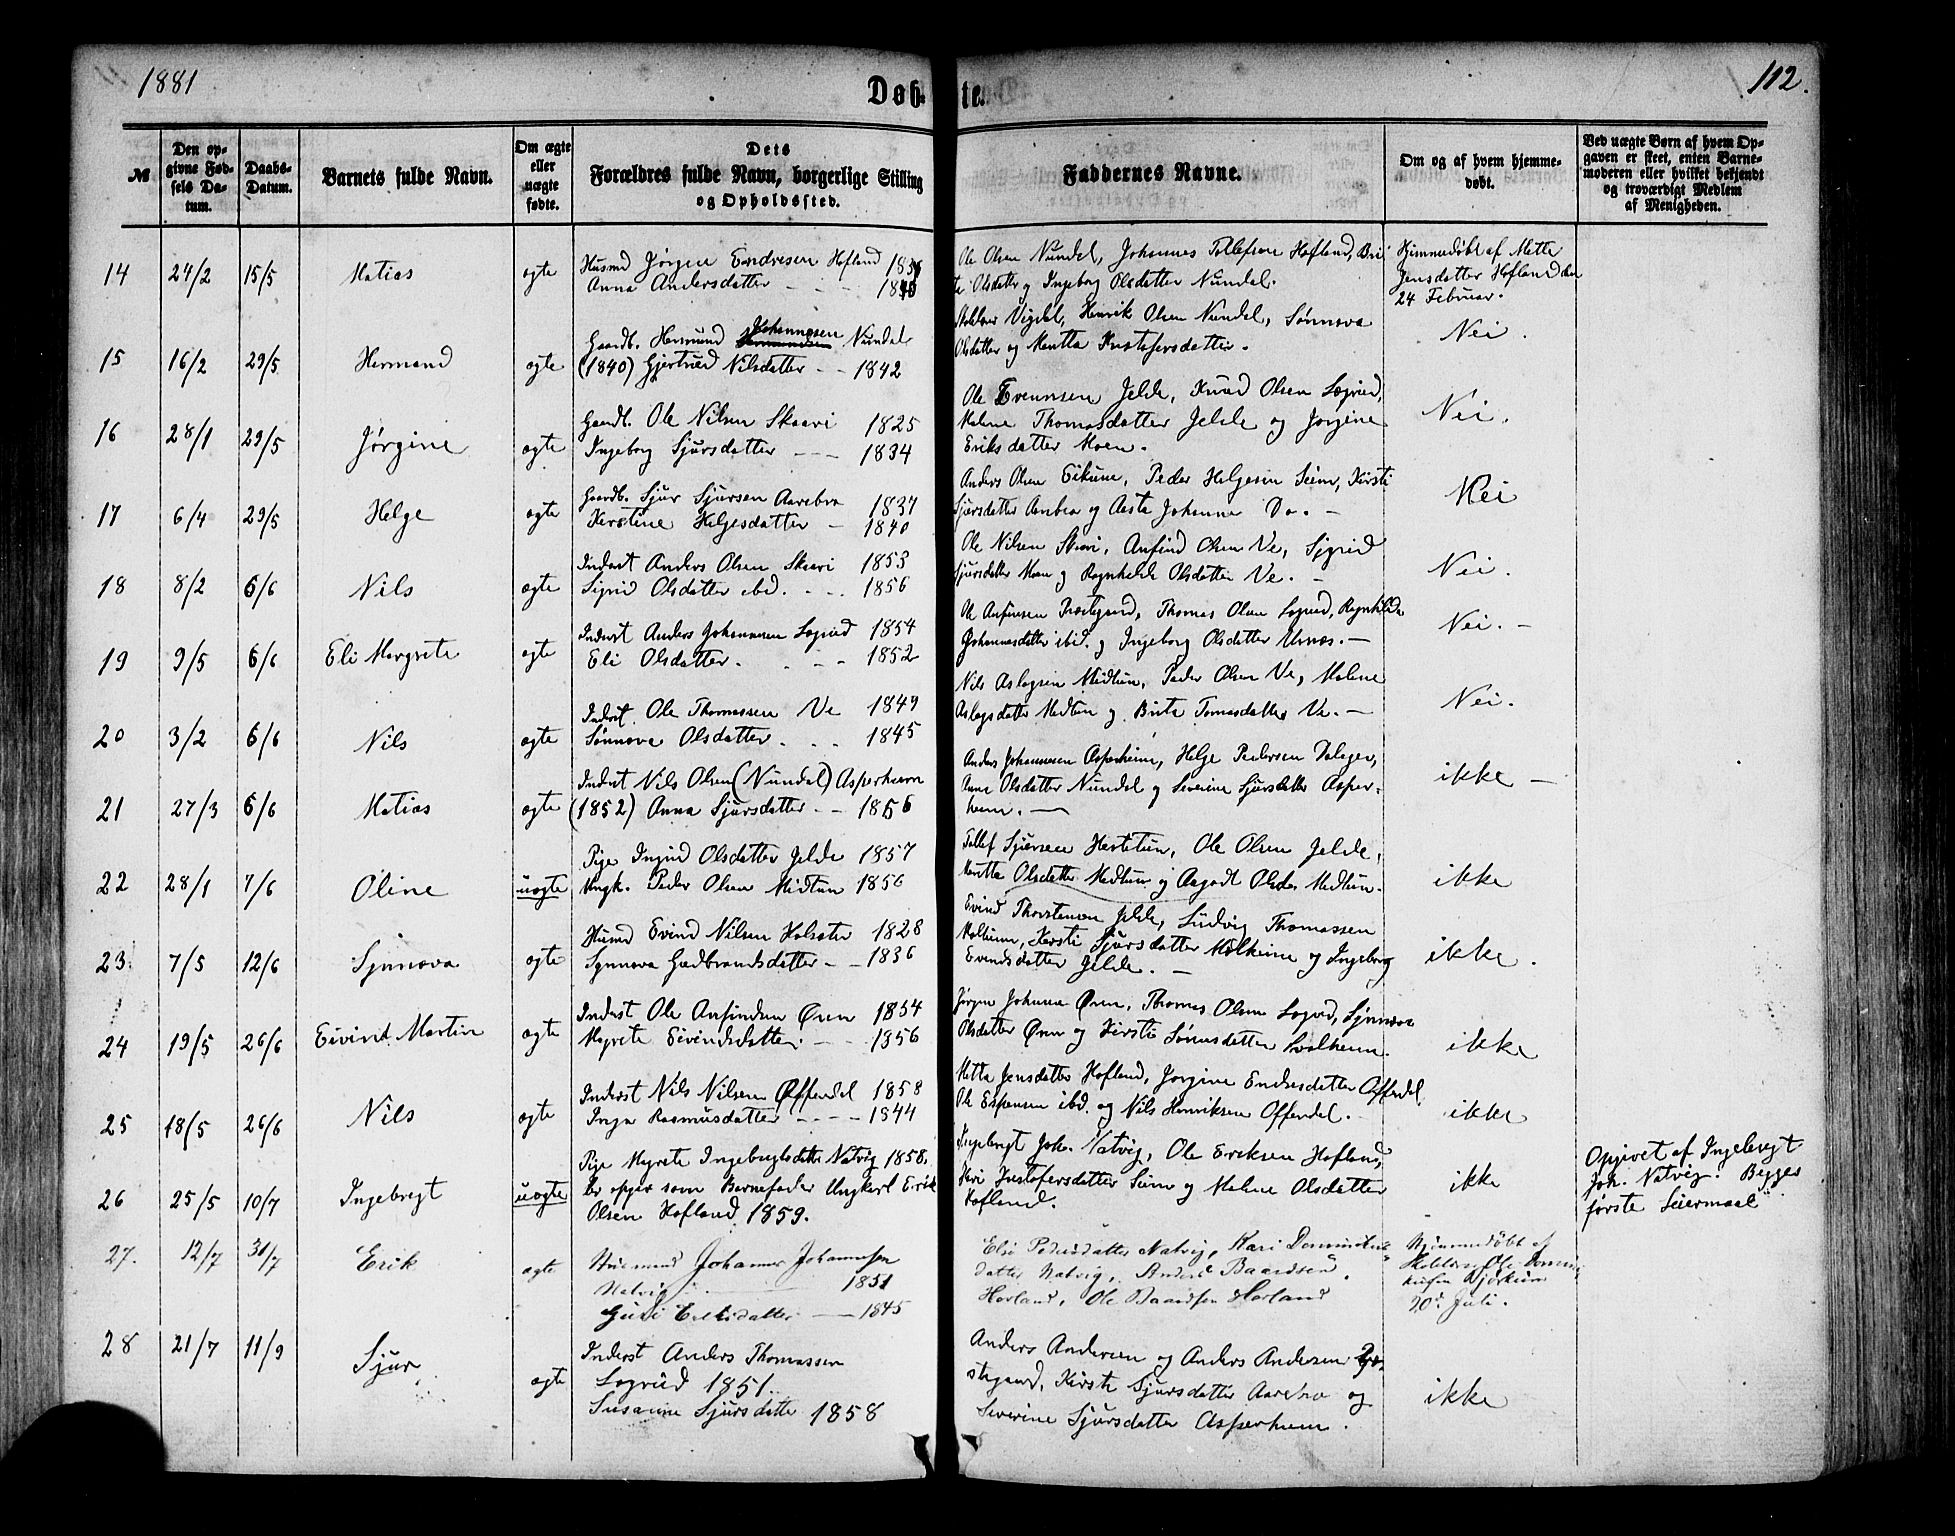 1881
Døbte.
112.
№
Den opgivne Fødsels Datum.
Daabs-Datum.
Barnets fulde Navn.
Om ægte eller uægte fødte.
Dets Forældres fulde Navn, borgerlige Stilling og Opholdssted.
Faddernes Navne.
Om og af hvem hjemmedøbt.
Ved uægte Børn af hvem Opgaven er skeet, enten Barnemoderen eller hvilket bekjendt og troværdigt Medlem af Menigheden.
14 24/2 15/5 Matias ægte Husmd Jørgen Endresen Hofland
Anna Andersdatter
Ole Olsen Nundal, Johannes Tollefsen Hofland, Bri
te Olsdatter og Ingeborg Olsdatter Nundal.
Hjemmedøbt af Mette
Jensdatter Hofland den
24 Februar.
15 16/2 29/5 Hermand ægte Gaardb. Hermund Johannesen Nundal
(1840) Gjertrud Nilsdatter -- 1842
Vigdal, Henrik Olsen Nundal, Sønnova
Olsdatter og Mentta Kristofersdatter.
Nei.
16 28/1 29/5 Jørgine ægte Gaardb. Ole Nilsen Skaavi 1825
Ingeborg Sjursdatter --- 1834
Ole Jelde, Knud Olsen Sogrud,
Malene Thomasdatter Jelde og Jørgine
Eriksdatter Moen.
Nei.
17 6/4 29/5 Helge ægte Gaardb. Sjur Sjursen Aarebro 1837
Kerstine Helgesdatter - 1840
Anders Olsen Eikum, Peder Helgesen Seim, Kirsti
Sjursdatter Aarebro og Aasta Johanne Do. -
Nei
18 8/2 6/6 Nils ægte Inderst Anders Olsen Skaavi 1853
Sigrid Olsdatter ibd. 1856
Ole Nilsen Skavi, Anfind Olsen Ve, Sigrid
Sjursdatter Moen og Ragnhilde Olsdatter Ve. -
Nei.
19 9/5 6/6 Eli Margrete ægte Inderst Anders Johannesen Sogrud 1854
Eli Olsdatter. 1852
Ole Anfinsen Thomas Olsen Sogrud, Ragnhilda
Johannesdatter ibid. og Ingeborg Olsdatter Urnæs. -
Nei. -
20 3/2 6/6 Nils ægte Inderst. Ole Thomassen Ve 1849
Sønnova Olsdatter. 1845
Nils Aslagsen Midtun, Peder Olsen Ve, Malene
Aslagsdatter Midtun og Brita Tomasdatter Ve. -
Nei.
21 27/3 6/6 Matias ægte Inderst Nils Olsen (Nundal) Asperheim
(1852) Anna Sjursdatter -- 1856
Anders Johannesen Asperheim, Helge Pedersen
Anne Olsdatter Nundal og Severine Sjursdatter Asper-
heim. -
ikke -
22 28/1 7/6 Oline uægte Pige Ingrid Olsdatter Jelde 1857
Ungk. Peder Olsen Midtun 1856
Tollef Sjursen Hertetun, Ole Olsen Jelde,
Mentta Olsdatter Midtun og Aagodt Olsda. Midtun.
ikke
23 7/5 12/6 Synnova ægte Husmd Evind Nilsen 1828
Synnova Gudbrandsdatter -- 1836
Evind Thorstensen Jelde, Ludvig Thomassen
Molheim, Kersti Sjursdatter Molheim og Ingeborg
Evindsdatter Jelde. -
ikke.
24 19/5 26/6 Eivind Martin ægte Inderst Ole Anfindsen Øren 1854
Magrete Eivindsdatter. -- 1856
Jørgen Johannes Øren, Thomas Olsen Sogrud, Synnova
Olsdatter Øren og Kirsti
ikke
25 18/5 26/6 Nils ægte Inderst Nils Nilsen Øffendal 1858
Inga Rasmusdatter ---- 1844
Metta Jensdatter Hofland, Jørgine Endresdatter Øffendal,
Ole Espensen ibd. og Nils Henriksen Offendal. -
ikke
26 25/5 10/7 Ingebregt uægte Pige Magrete Ingebregtsdatter Natvig 1858,
er opgiv som Barnefader Ungkarl Erik
Olsen Hofland 1859.
Ingebregt Joh. Natvig, Ole Eriksen Hofland,
Kari Kristofersdatter Seim og Malene Olsdatter
Hofland.
ikke
Opgivet af Ingebregt
Joh. Natvig. Begges
første Leiermaal
27. 12/7 31/7 Erik ægte Huusmand Johannes Johannesen
Natvig 1851
Guri Eriksdatter - 1845
Else Pedersdatter Natvig, Kari
datter Natvig, Anders Baardsen
Horland, Ole Baardsen Horland
Hjemmedøbt af
Ole
Bjørkum
20de Juli.
28 21/7 11/9 Sjur ægte Inderst Anders Thomassen
Sogrud 1851.
Susanne Sjursdatter 1858
Anders Andersen og Anders Andersen
Kirste Sjursdatter Aarebro og
Severine Sjursdatter Asperheim.
ikke